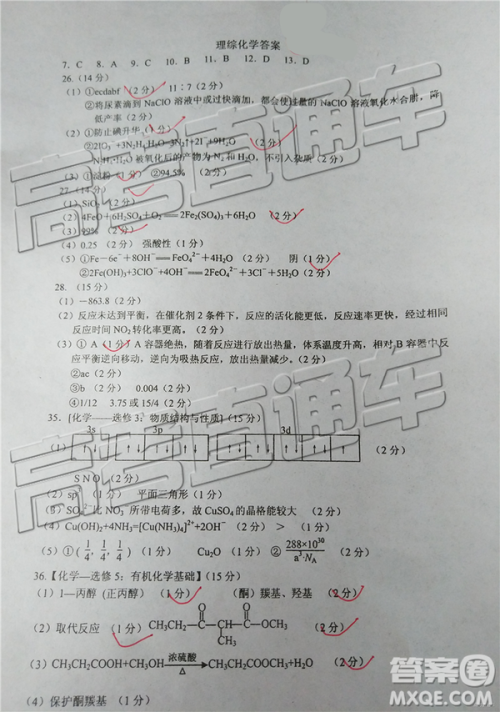 理综化学答案
7. C 8. A 9. C 10. C 11. B 12. D 13. D
26.(14分)
(1)①ecdabf(2分) 11∶7(2分)
②将尿素滴到 NaClO 溶液中或过快滴加,都会使过量的 NaClO 溶液氧化水合肼,降
低产率(2分)
(2)①防止碘升华(2分)
N₂H₄·H₂O 被氧化后的产物为 N₂ 和 H₂O,不引入杂质(2分)
(3)①淀粉 ②94.5%(2分)
27.(14分)
(1)SiO₂
(2)4FeO+6H₂SO₄+O₂══2Fe₂(SO₄)₃+6H₂O (2分)
(3)99%(2分)
(4)0.25(2分) 强酸性(1分)
(5)①Fe-6e⁻+8OH⁻══FeO₄²⁻+4H₂O(2分) 阴(1分)
②2Fe(OH)₃+3ClO⁻+4OH⁻══2FeO₄²⁻+3Cl⁻+5H₂O(2分)
28.
(1)-863.8(2分)
(2)反应未达到平衡,在催化剂 2 条件下,反应的活化能更低,反应速率更快,经过相同
反应时间 NO₂ 转化率更高。(2分)
(3)①A(1分)A 容器绝热,随着反应进行放出热量,体系温度升高,相对 B 容器中反
应平衡逆向移动,逆向为吸热反应,放出热量减少。(2分)
②ac(2分)
③b(2分) 0.004(2分)
④1/12 3.75 或 15/4(2分)
35.[化学——选修 3:物质结构与性质](15分)
3s 3p 3d
(1) (2分)
S N O
(2)sp 平面三角形(1分)
所带电荷多,故 CuSO₄ 的晶格能较大 (2分)
(4)Cu(OH)₂+4NH₃=[Cu(NH₃)₄]²⁺+2OH⁻ (2分) > (1分)
(5)①(1/4, 1/4, 1/4)(1分) Cu₂O(1分) ②288×10³⁰/a³·N_A(2分)
36.【化学—选修 5:有机化学基础】(15分)
(1)1—丙醇(正丙醇)(1分) (酮)羰基、羟基(2分)
(2)取代反应(1分)CH₃CH₂ O O OCH₃ CH₃ (2分)
(3)CH₃CH₂COOH+CH₃OH 浓硫酸 △ CH₃CH₂COOCH₃+H₂O (2分)
(4)保护酮羰基(1分)
高考直通车
高考直通车
答案圈
MXQE.COM